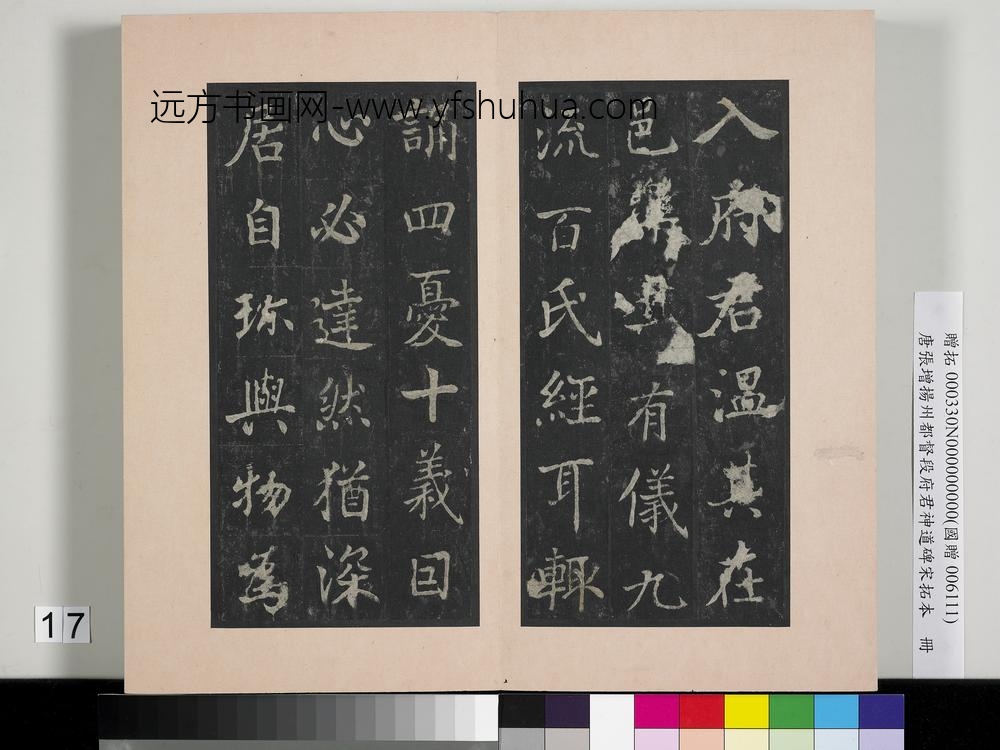 远方书画网-www.yfshuhua.com
入府君温其在
邑 有儀九
流百氏經耳輙
誦四憂十義目
心必達然猶深
居自珎與物為
贈拓 000330N000000000(國贈 006111)
唐張增揚州都督段府君神道碑宋拓本 冊
17